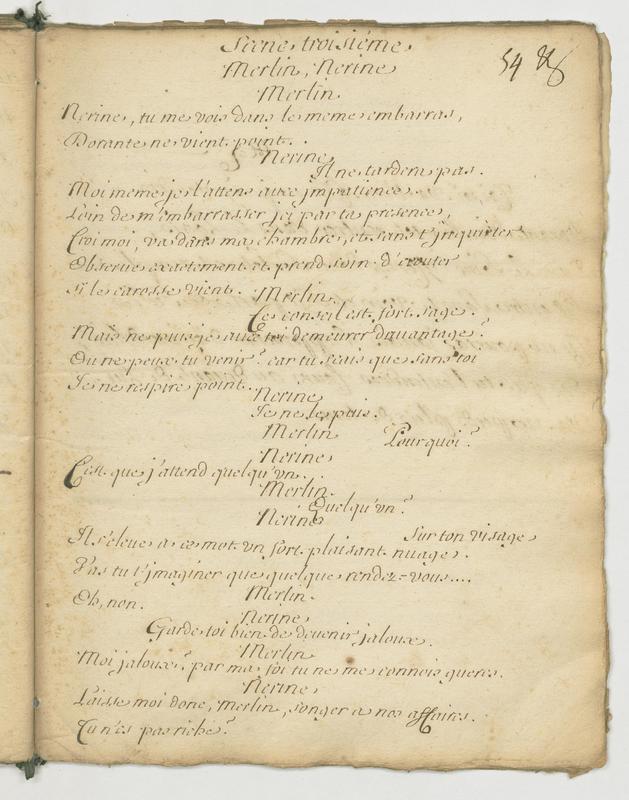 Scene troisiéme
54
Merlin, Nerine
Merlin
Nerine, tu me vois dans le meme embarras,
Dorante ne vient point.
Nerine
Il ne tardera pas.
Moi meme je l'attens avec impatience.
Loin de m'embarrasser jci par ta presence,
Croi moi, va dans ma chambre, et sans t'jnquieter
Observe exactement et prend soin d'ecouter
si le carosse vient.
Merlin
Ce conseil est fort sage.
Mais ne puis je avec toi demeurer davantage?
Ou ne peux tu venir? car tu scais que sans toi
Je ne respire point.
Nerine
Je ne le puis.
Merlin
Pourquoi?
Nerine
C'est que j'attend quelqu'vn.
Merlin
Quelqu'vn?
Nerine
Sur ton visage
Il s'eleve a ce mot vn fort plaisant nuage.
Vas tu t'jmaginer que quelque rendez=vous....
Merlin
Oh, non.
Nerine
Garde toi bien de devenir jaloux.
Merlin
Moi jaloux? par ma foi tu ne me connois gueres.
Nerine
Laisse moi donc, Merlin, songer a nos affaires.
Tu n'es pas riche?